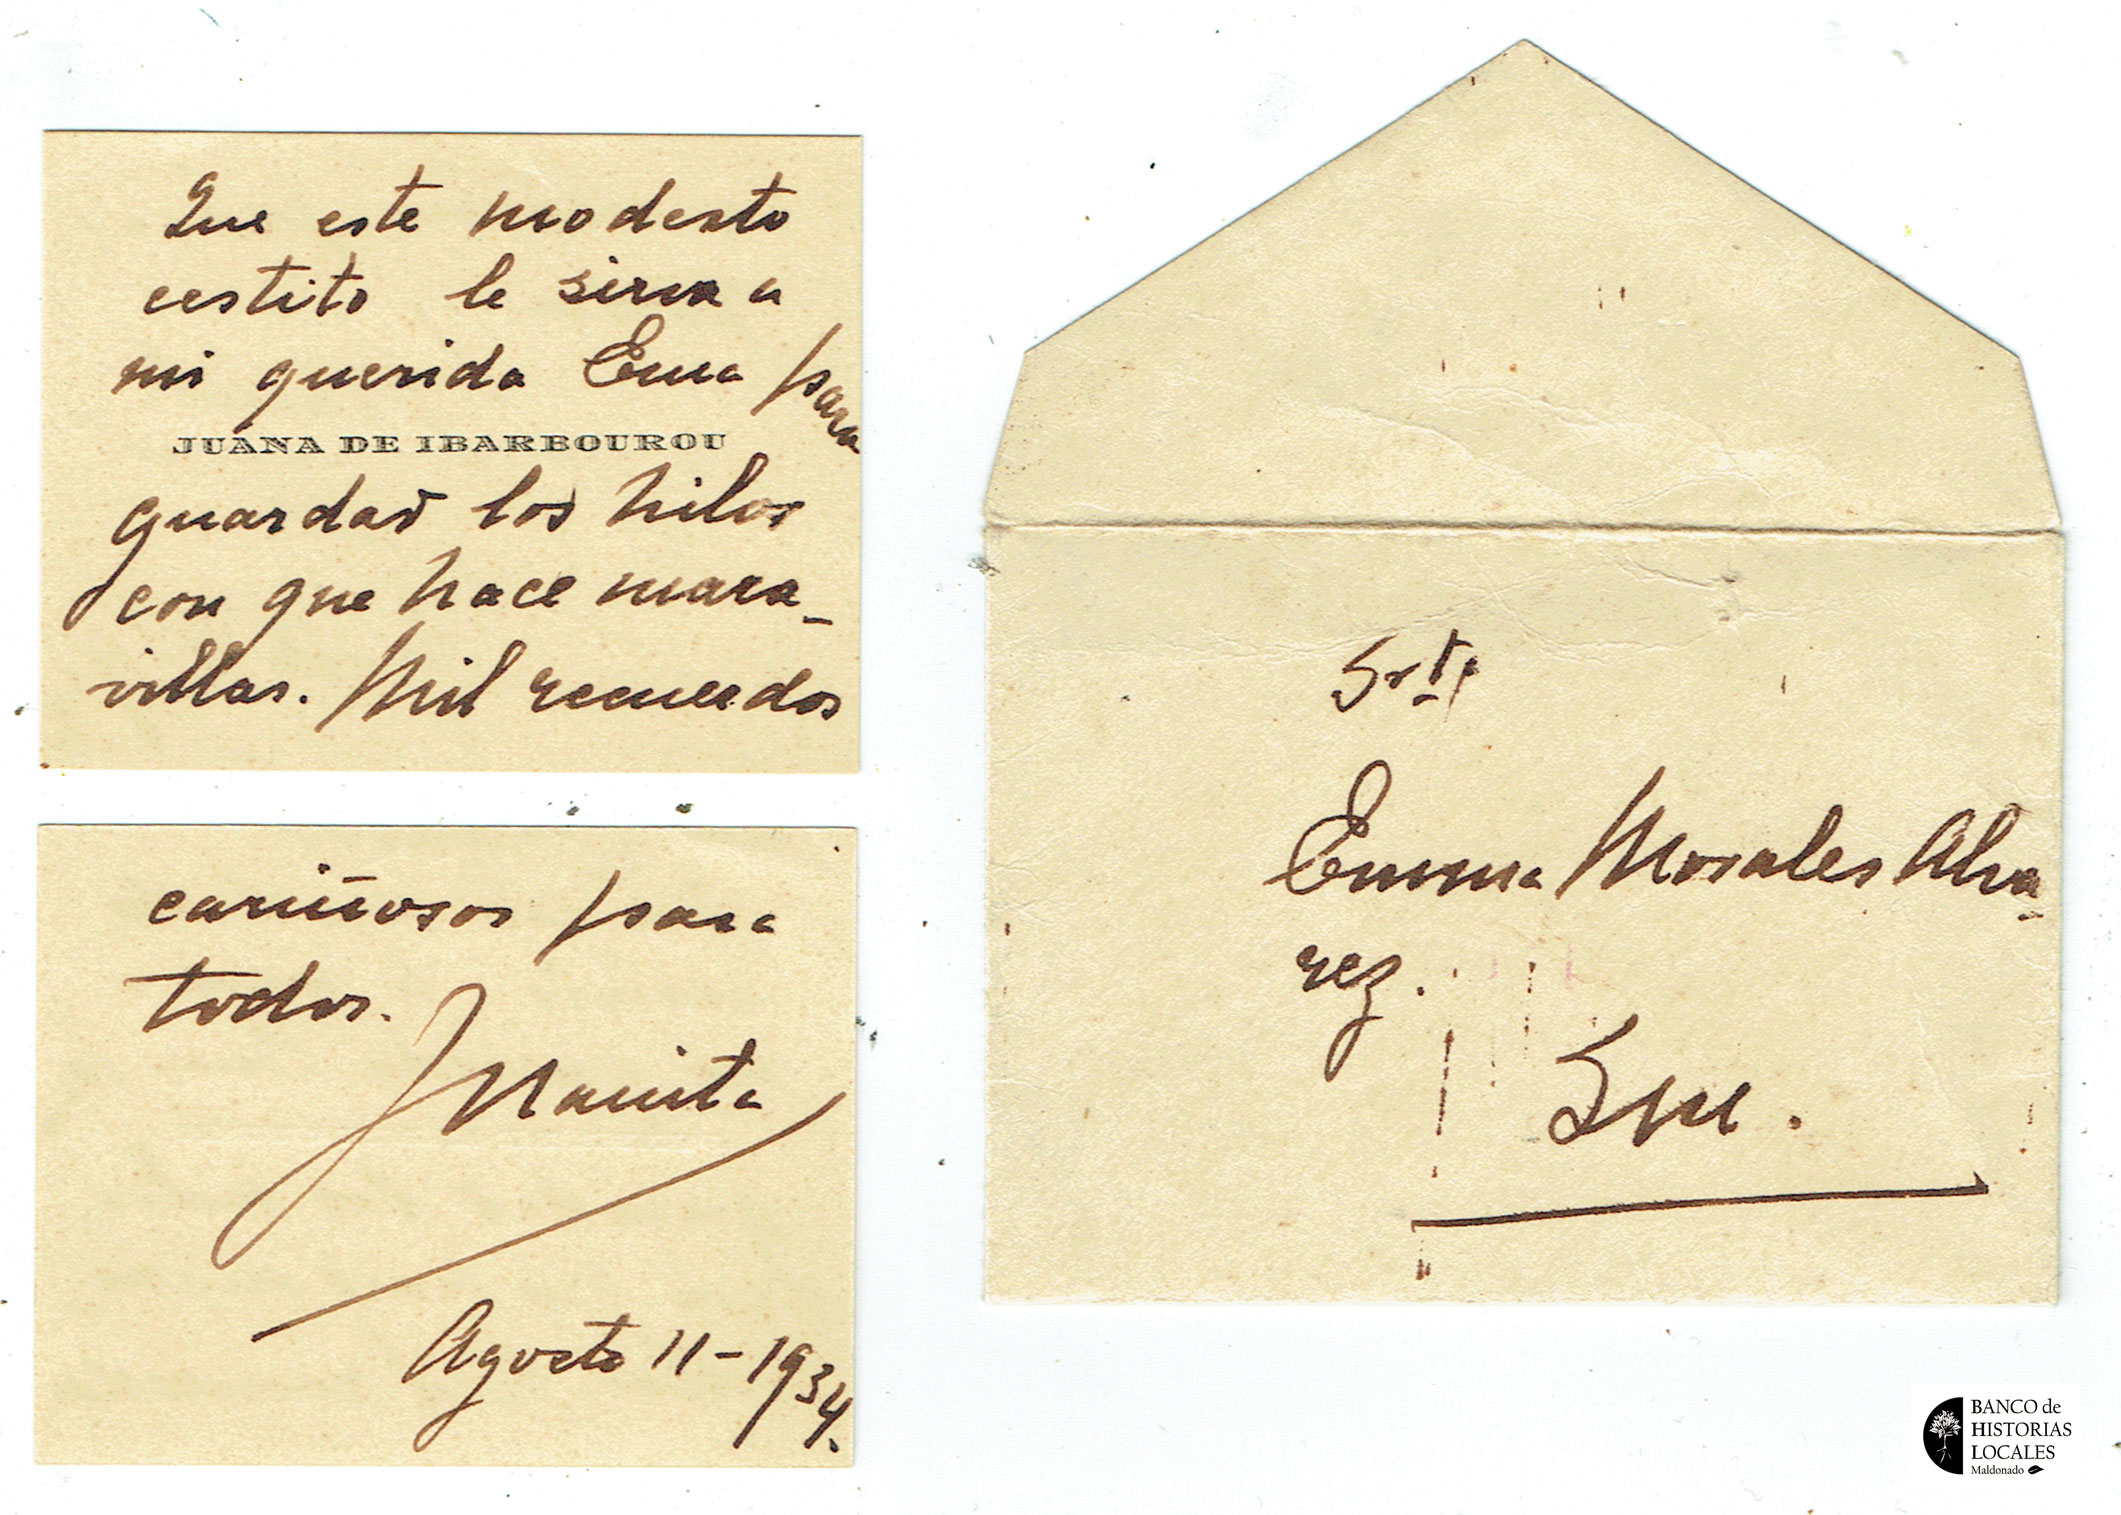 Que este modesto
cestito le sirva a
mi querida Ema para
JUANA DE IBARBOUROU
guardar los hilos
con que hace mara-
villas. Mil recuerdos
cariñosos para
todos.
Juanita
Agosto 11-1934.
Srta
Emma Morales Alva-
rez.
BANCO de
HISTORIAS
LOCALES
Maldonado